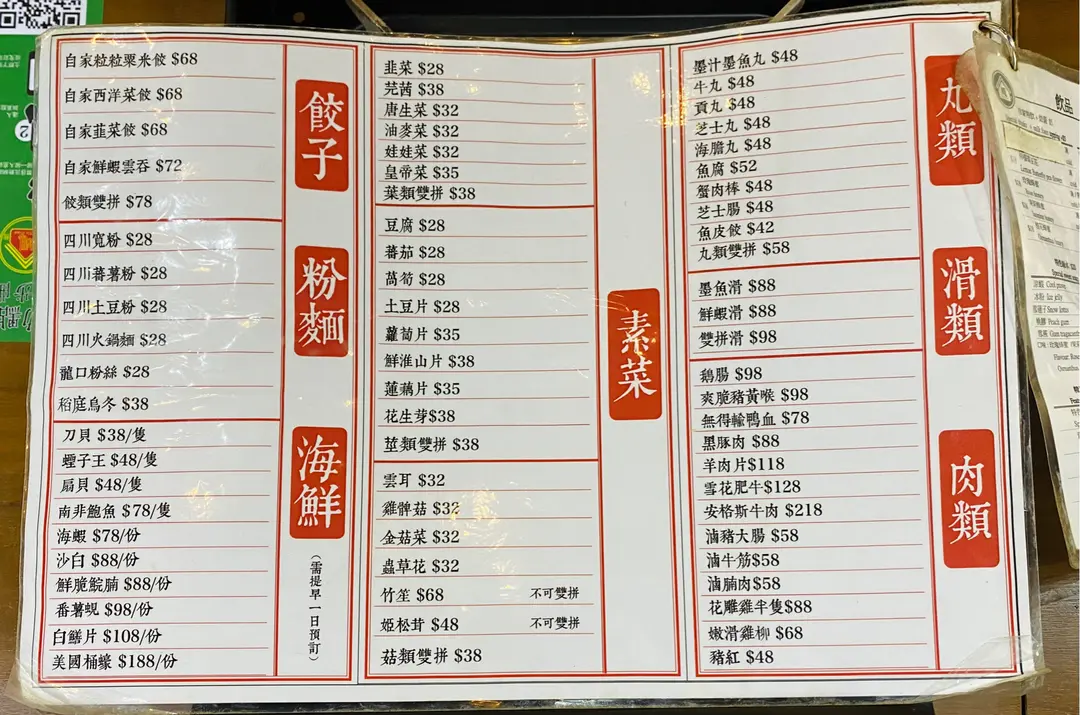 餃子
自家粒粒粟米餃 $68
自家西洋菜餃 $68
自家韮菜餃 $68
自家鮮蝦雲吞 $72
餃類雙拼 $78
粉麵
四川寬粉 $28
四川蕃薯粉 $28
四川土豆粉 $28
四川火鍋麵 $28
龍口粉絲 $28
稻庭烏冬 $38
海鮮
(需提早一日預訂)
刀貝 $38/隻
蟶子王 $48/隻
扇貝 $48/隻
南非鮑魚 $78/隻
海蝦 $78/份
沙白 $88/份
鮮脆鯇腩 $88/份
番薯蜆 $98/份
白鱔片 $108/份
美國桶蠔 $188/份
素菜
韭菜 $28
芫茜 $38
唐生菜 $32
油麥菜 $32
娃娃菜 $32
皇帝菜 $35
葉類雙拼 $38
豆腐 $28
蕃茄 $28
萵筍 $28
土豆片 $28
蘿蔔片 $35
鮮淮山片 $38
蓮藕片 $35
花生芽$38
莖類雙拼 $38
雲耳 $32
雞髀菇 $32
金菇菜 $32
蟲草花 $32
竹笙 $68 不可雙拼
姬松茸 $48 不可雙拼
菇類雙拼 $38
丸類
墨汁墨魚丸 $48
牛丸 $48
貢丸 $48
芝士丸 $48
海膽丸 $48
魚腐 $52
蟹肉棒 $48
芝士腸 $48
魚皮餃 $42
丸類雙拼 $58
滑類
墨魚滑 $88
鮮蝦滑 $88
雙拼滑 $98
肉類
鵝腸 $98
爽脆豬黃喉 $98
無得輸鴨血 $78
黑豚肉 $88
羊肉片$118
雪花肥牛$128
安格斯牛肉 $218
滷豬大腸 $58
滷牛筋$58
滷腩肉$58
花雕雞半隻$88
嫩滑雞柳 $68
豬紅 $48
飲品